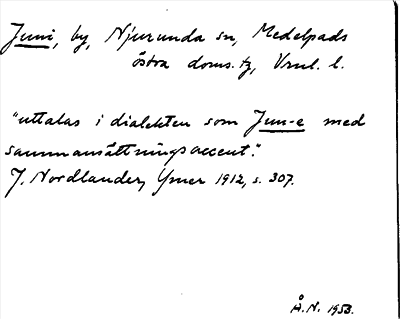 Juni, by, Njurunda sn, Medelpads
östra doms. tg, Vrnl. l.
"uttalas i dialekten som Jun-e med
sammansättningsaccent".
J. Nordlander, Ymer 1912, s. 307.
Å.N. 1953.